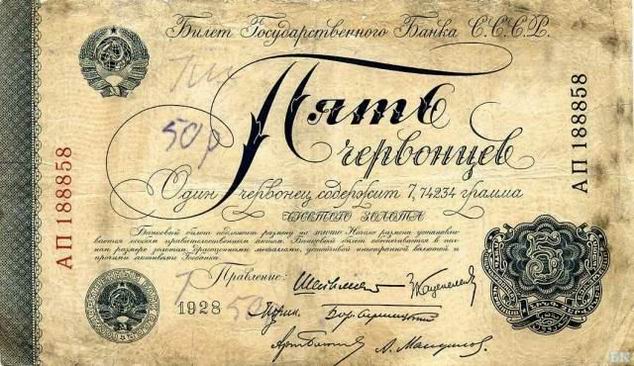 Билет Государственного Банка С.С.С.Р.
Пять
червонцев
Один червонец содержит 7,74234 грамма
чистого золота
Банковый билет подлежит размену на золото. Начало размена устанавли-
вается особым правительственным актом. Банковый билет обеспечивается в пол-
ном размере золотом, драгоценными металлами, устойчивой иностранной валютой и
прочими активами Госбанка.
Правление:
1928
АП 188858
АП 188858
50 р
50
5
БК